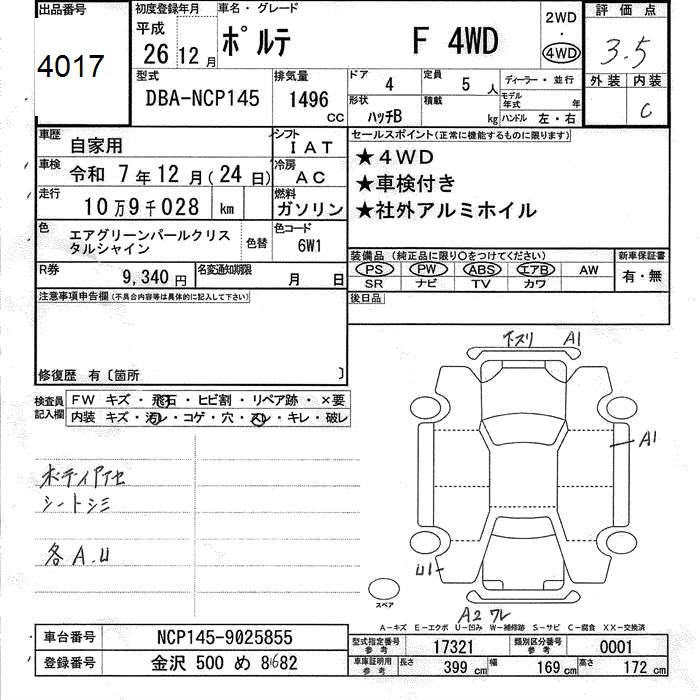 出品番号
4017
初度登録年月
平成
26年12月
車名・グレード
ポルテ F 4WD
2WD
・
4WD
評価点
3.5
外装 内装
C
型式
DBA-NCP145
排気量
1496
CC
ドア
4
定員
5人
ディーラー・並行
形状
ハッチB
積載
kg
モデル年式 年
ハンドル 左・右
車歴
自家用
シフト
IAT
車検
令和 7年12月(24日)
冷房
AC
走行
10万9千028 km
燃料
ガソリン
色
エアグリーンパールクリスタルシャイン
色替
色コード
6W1
R券
9,340円
名変通知期限
月 日
セールスポイント(正常に機能するものに限ります)
★4WD
★車検付き
★社外アルミホイル
装備品(純正品に限り○をつけてください)
新車保証書
PS PW ABS エアB AW
SR ナビ TV カワ
有・無
後日品
注意事項申告欄(不具合内容等は具体的に記入して下さい)
修復歴 有〔箇所 〕
検査員記入欄
FW キズ・飛石・ヒビ割・リペア跡・×要
内装 キズ・汚レ・コゲ・穴・スレ・キレ・破レ
ボディアセ
シートシミ
各A.U
下スリ A1
A1
U1
スペア
A2 ワレ
A-キズ E-エクボ U-凹み W-補修跡 S-サビ C-腐食 XX-交換済
車台番号
NCP145-9025855
登録番号
金沢 500 め 8682
型式指定番号
参考
17321
類別区分番号
参考
0001
車庫証明用
参考
長さ 399cm 幅 169cm 高さ 172cm